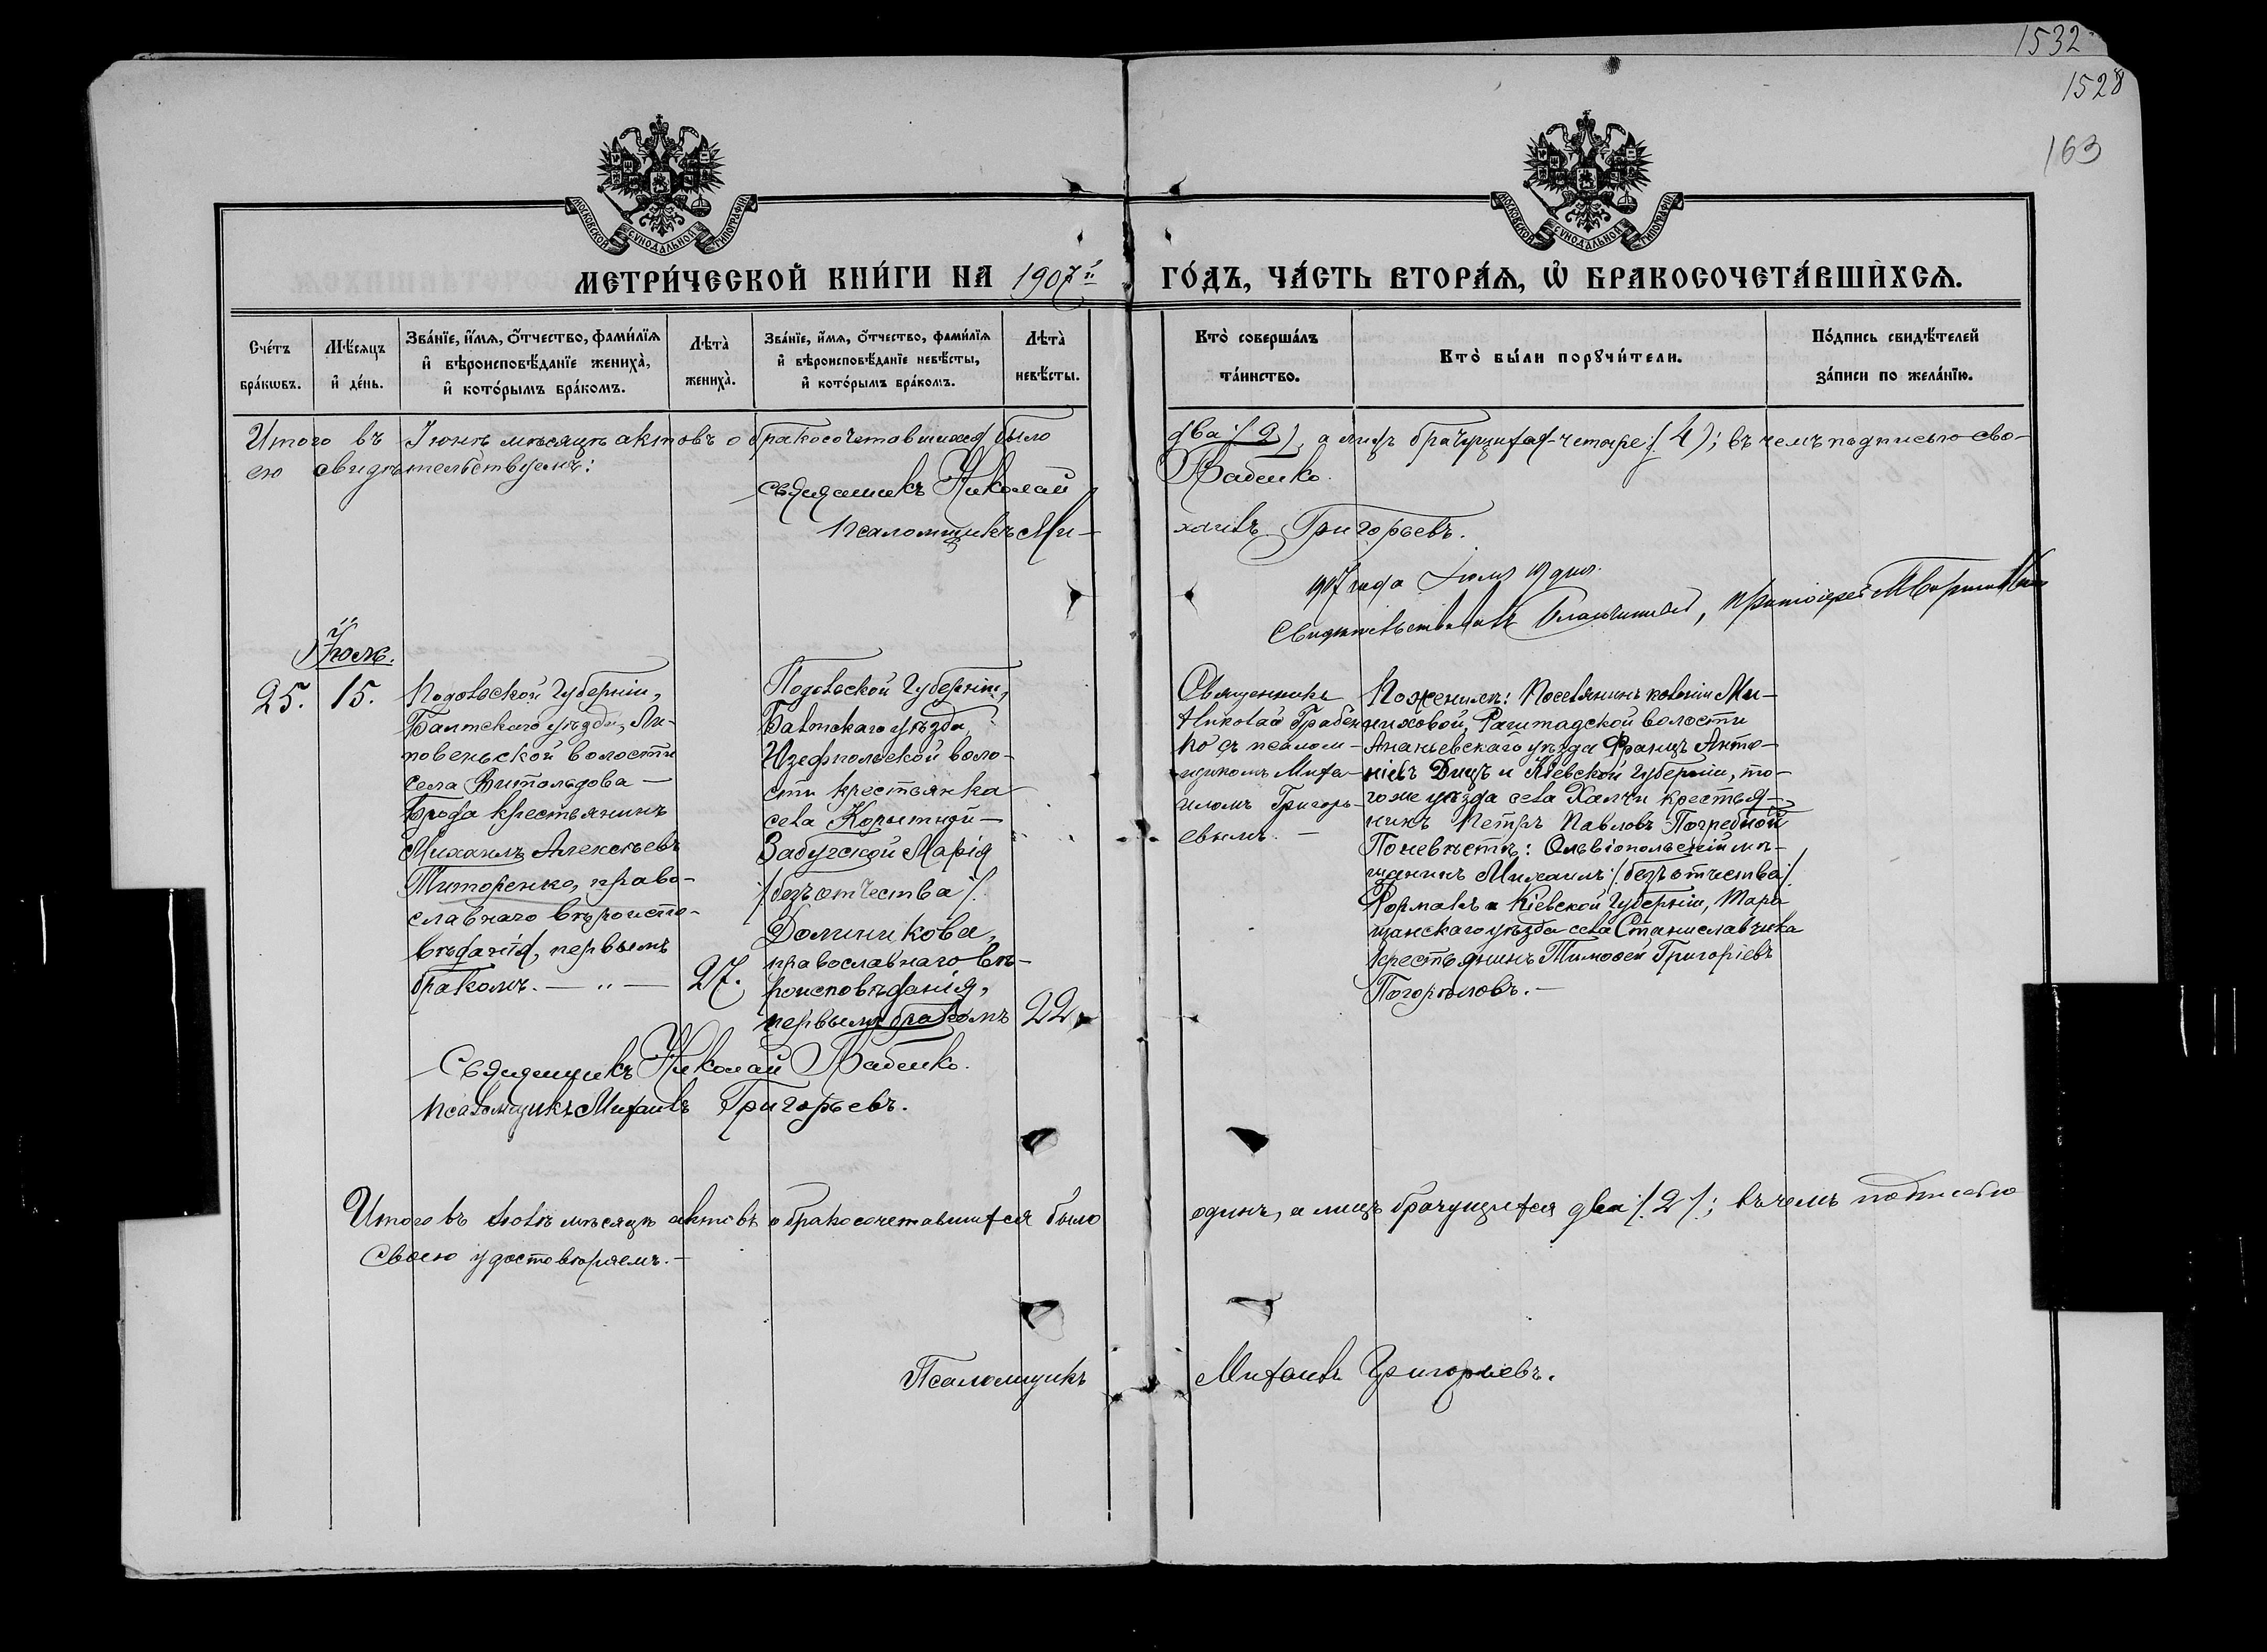 1532
1528
163
МОСКОВСКОЙ СѴНОДАЛЬНОЙ ТИПОГРАФІИ
МОСКОВСКОЙ СѴНОДАЛЬНОЙ ТИПОГРАФІИ
МЕТРИ́ЧЕСКОЙ КНИ́ГИ НА 1907й ГО́ДЪ, ЧА́СТЬ ВТОРА́Ѧ, Ѡ҆ БРАКОСОЧЕТА́ВШИХСѦ.
Сче́тъ бра́кѡвъ.
Мѣ́сѧцъ и҆ де́нь.
Зва́нїе, и҆́мѧ, ѻ҆́тчество, фами́лїѧ и҆ вѣроисповѣ́данїе жениха̀, и҆ кото́рымъ бра́комъ.
Лѣта̀ жениха̀.
Зва́нїе, и҆́мѧ, ѻ҆́тчество, фами́лїѧ и҆ вѣроисповѣ́данїе невѣ́сты, и҆ кото́рымъ бра́комъ.
Лѣта̀ невѣ́сты.
Кто̀ соверша́лъ та́инство.
Кто̀ бы́ли порꙋчи́тели.
По́дпись свидѣ́телей за́писи по жела́нїю.
Итого въ Іюнѣ мѣсяцѣ актовъ о бракосочетавшихся было два /2/, а лицъ брачущихся четыре /4/; въ чемъ подписью сво-
ею свидѣтельствуемъ:
Священникъ Николай Грабенко.
Псаломщикъ Ми-хаилъ Григорьевъ.
1907 года Іюля 19 дня.
Свидѣтельствовалъ Благочинный, протоіерей
Іюль.
25.
15.
Подольской Губерніи,
Балтскаго уѣзда, Ли-
повеньской волости
села Витольдова-
Брода крестьянинъ
Михаилъ Алексѣевъ
Титоренко, право-
славнаго вѣроиспо-
вѣданія, первымъ
бракомъ. — „ —
27.
Подольской Губерніи,
Балтскаго уѣзда,
Юзефпольской воло-
сти крестьянка
села Корытной-
Забугской Марія
/безъ отчества/
Доминикова,
православнаго вѣ-
роисповѣданія,
первымъ бракомъ
22
Священникъ
Николай Грабен-
ко съ псалом-
щикомъ Миха-
иломъ Григорь-
евымъ. —
По женихѣ: Поселянинъ колоніи Мю-
ниховой, Раштадской волости
Ананьевскаго уѣзда Францъ Анто-
ніевъ Дицъ и Кіевской Губерніи, то-
гоже уѣзда села Халчи крестья-
нинъ Петръ Павловъ Погребной
По невѣстѣ: Ольвіопольскій мѣ-
щанинъ Михаилъ /безъ отчества/
Форманъ и Кіевской Губерніи, Тара
щанскаго уѣзда села Станиславчика
крестьянинъ Тимофей Григоріевъ
Погорѣловъ. —
Священникъ Николай Грабенко.
Псаломщикъ Михаилъ Григорьевъ.
Итого въ Іюлѣ мѣсяцѣ актовъ о бракосочетавшихся было одинъ, а лицъ брачущихся два /2/; въ чемъ подписью
своею удостовѣряемъ. —
Псаломщикъ Михаилъ Григорьевъ.